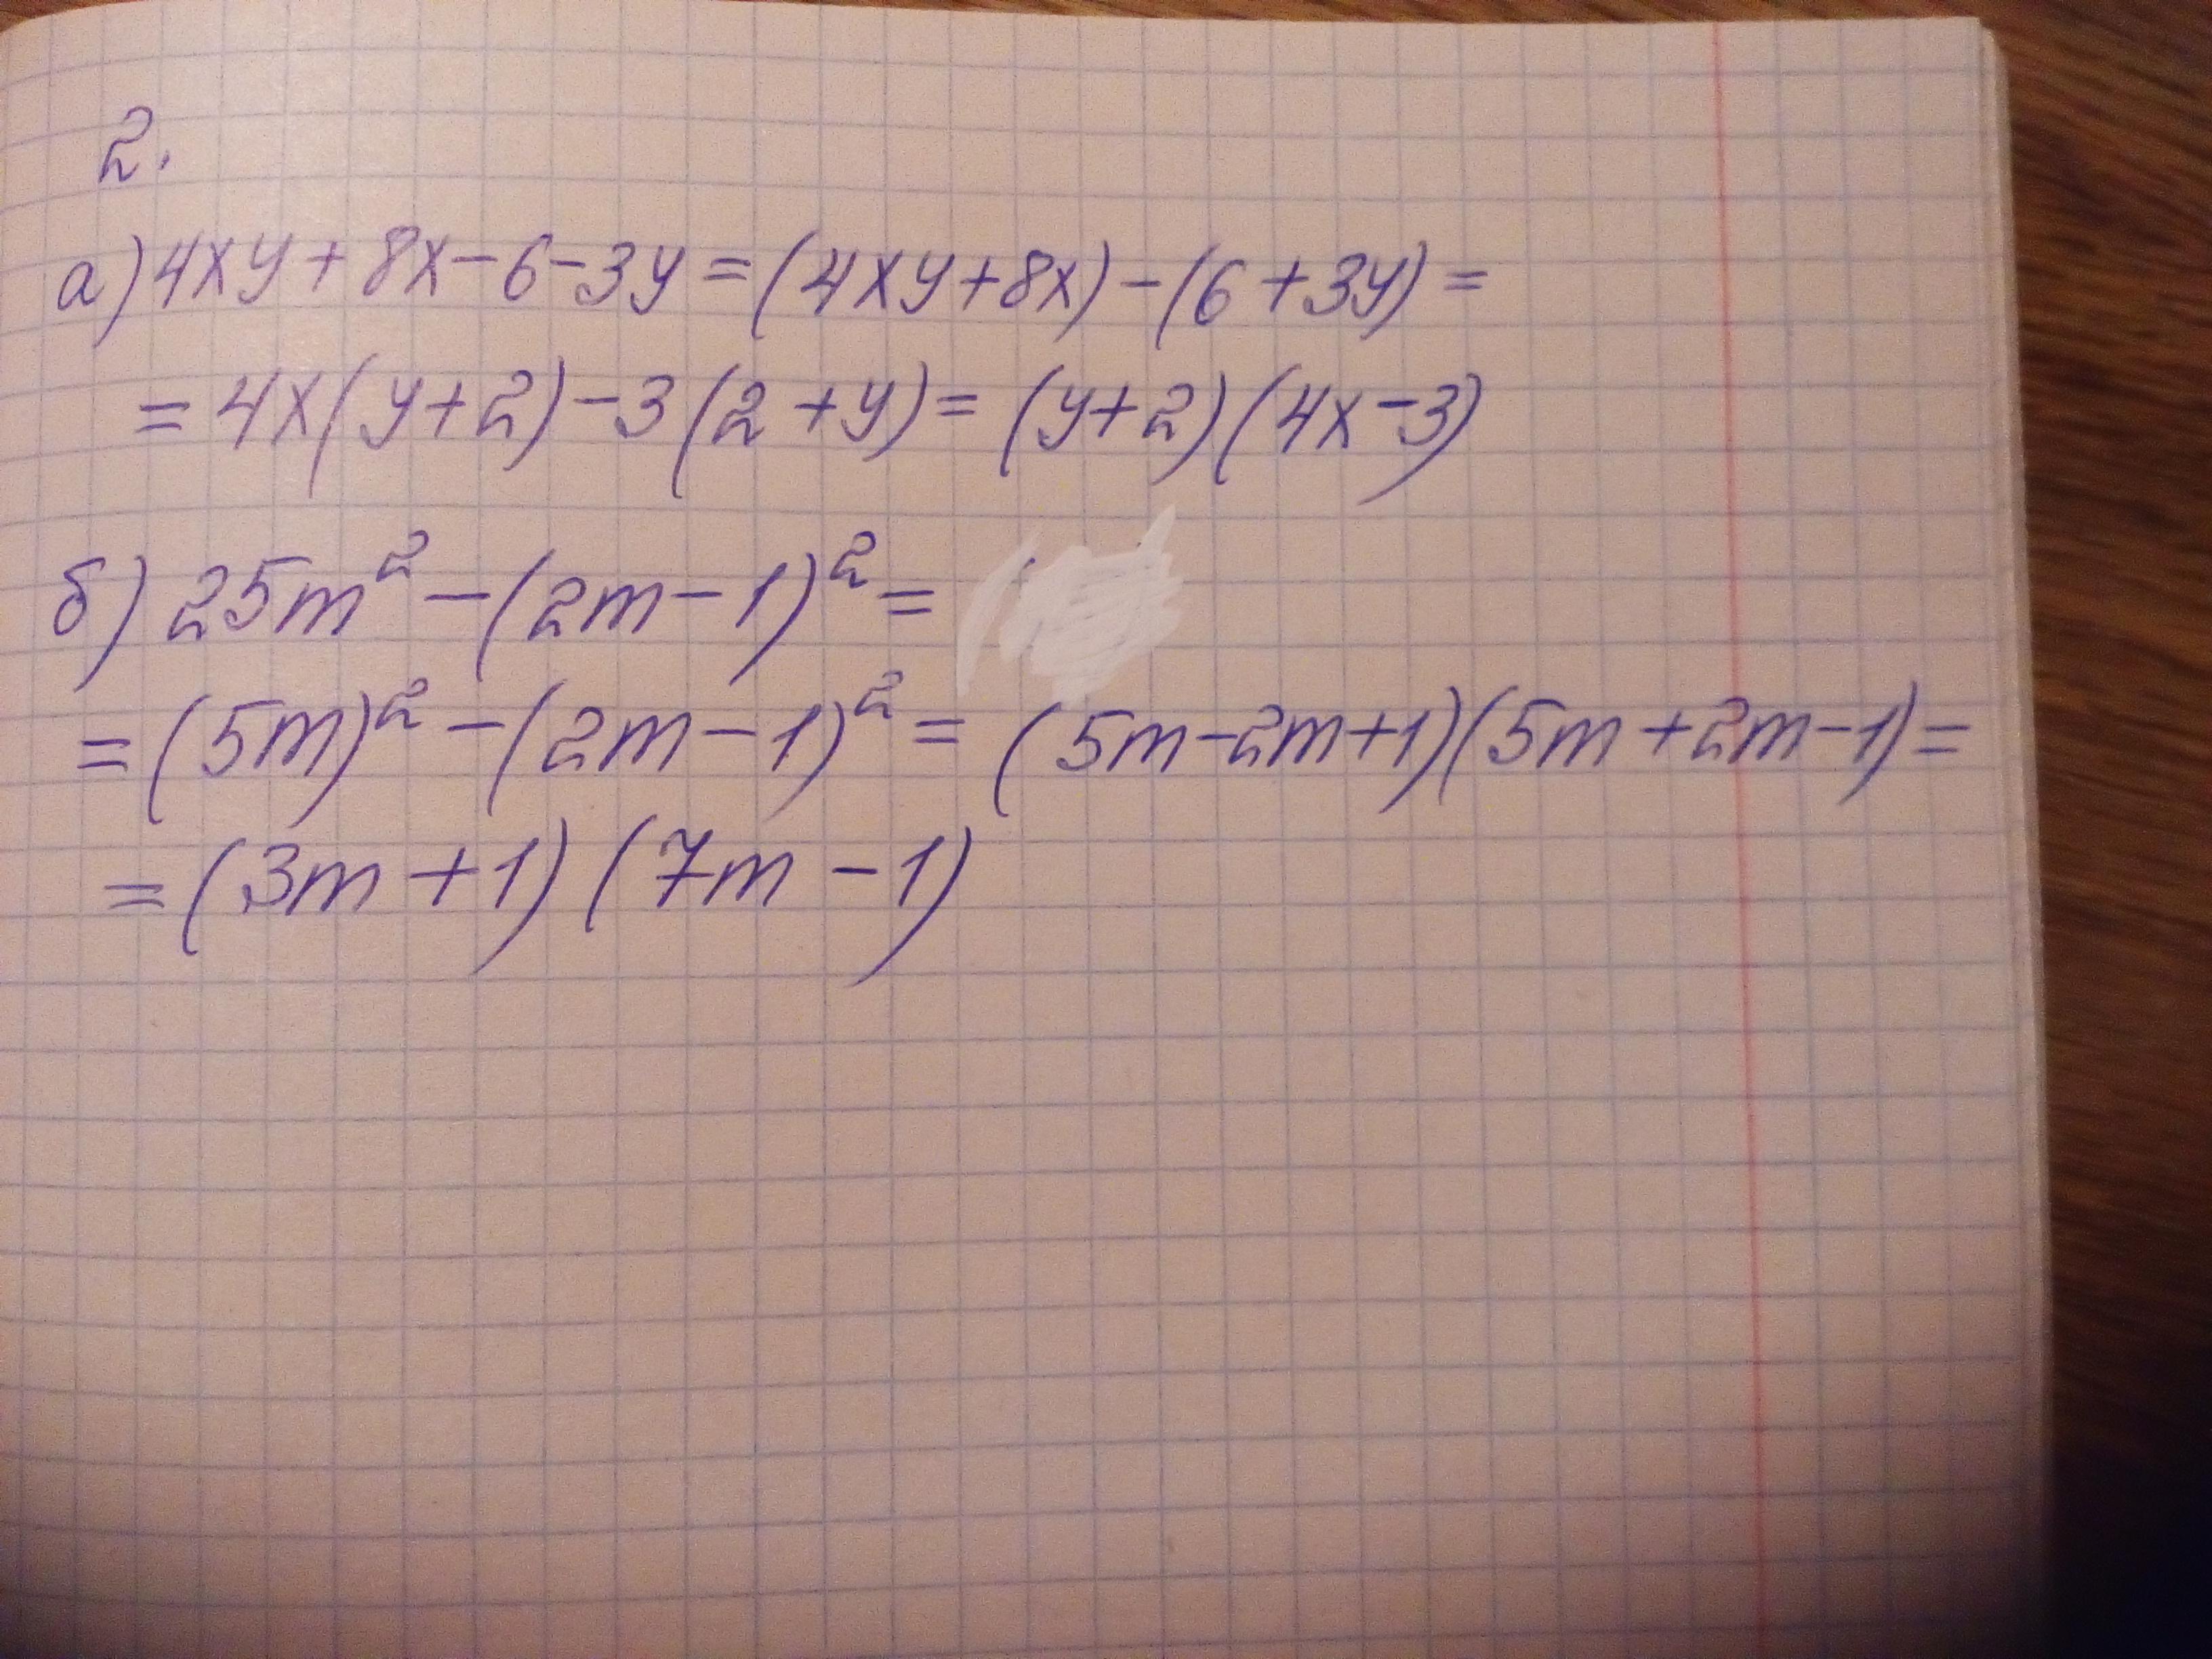 2.
а) 4xy + 8x - 6 - 3y = (4xy + 8x) - (6 + 3y) =
= 4x(y + 2) - 3(2 + y) = (y + 2)(4x - 3)
б) 25m² - (2m - 1)² =
= (5m)² - (2m - 1)² = (5m - 2m + 1)(5m + 2m - 1) =
= (3m + 1)(7m - 1)